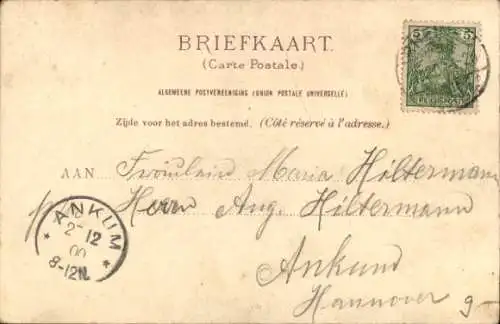 BRIEFKAART.
(Carte Postale.)
5 5
REICHSPOST
ALGEMEENE POSTVEREENIGING (UNION POSTALE UNIVERSELLE)
Zijde voor het adres bestemd. (Côté réservé à l'adresse.)
AAN Fräulein Maria Hiltermann
Herrn Aug. Hiltermann
Ankum
Hannover
ANKUM
2 12
00
8-12N.